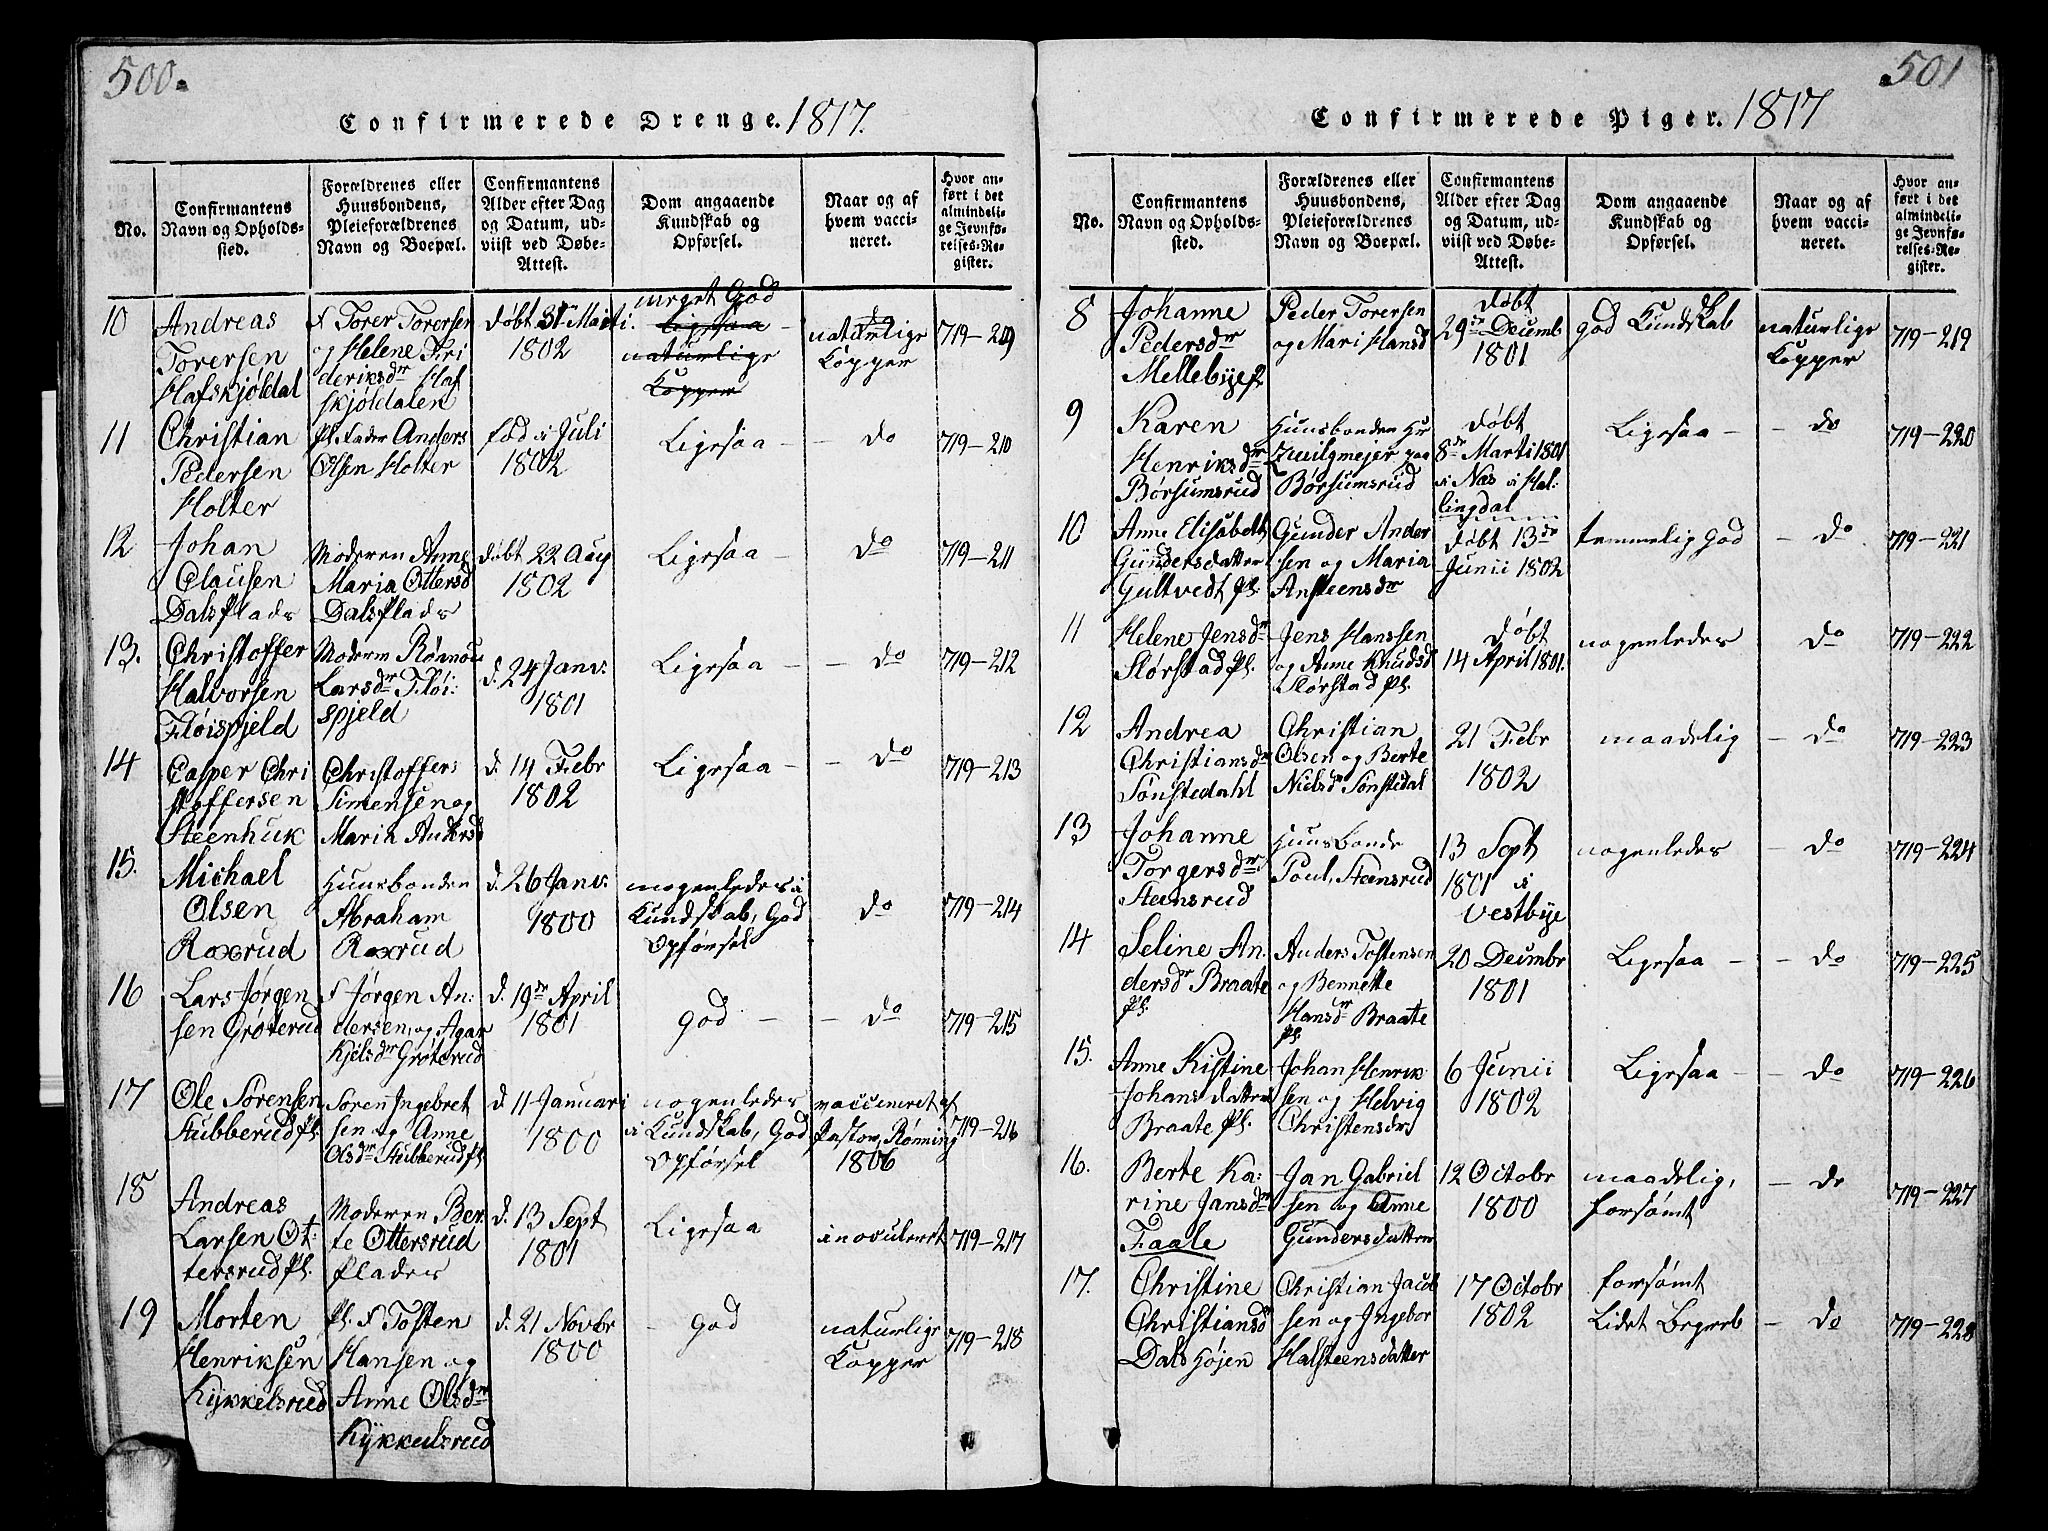 500.
Confirmerede Drenge. 1817.
No.
Confirmantens
Navn og Opholds-
sted.
Forældrenes eller
Huusbondens,
Pleieforældrenes
Navn og Boepæl.
Confirmantens
Alder efter Dag
og Datum, ud-
viist ved Døbe-
Attest.
Dom angaaende
Kundskab og
Opførsel.
Naar og af
hvem vacci-
neret.
Hvor an-
ført i det
almindeli-
ge Jevnfø-
relses-Re-
gister.
10
Andreas
Torersen
Hafskjöldal
F Torer Torersen
og Helene Fri
deriksdr Haf
skjöldalen
döbt 31 Marti.
1802
meget God
Ligesaa
naturlige
Kopper
do
naturlige
Kopper
719-209
11
Christian
Pedersen
Holter
Pl. Fader Anders
Olsen Holter
föd i Juli
1802
Ligesaa -
- do
719-210
12
Johan
Clausen
Dals Plads
Moderen Anne
Maria Ottersd
Dals Plads
döbt 22 Aug
1802
Ligesaa -
do
719-211
13.
Christoffer
Halvorsen
Flöispjeld
Moderen Rönnou
Larsdr Flöi:
spjeld
d. 24 Janv.
1801
Ligesaa -
- do
719-212
14
Casper Chri
stoffersen
Steenhuk
Christoffer
Simensen og
Maria Andersd
d. 14 Febr
1802
Ligesaa -
- do
719-213
15.
Michael
Olsen
Roxrud
Huusbonden
Abraham
Roxrud
d. 26 Janv.
1800
nogenledes i
Kundskab, God
Opförsel
do
719-214
16
Lars Jörgen
sen Gröterud
F Jörgen An:
dersen, og Agar
Kjelsdr Gröterud
d. 19de April
1801
God -
- do
719-215
17
Ole Sörensen
Stubberud Pl.
Sören Ingebret
sen og Anne
Olsdr Stubberud Pl
d. 11 Januari
1800
nogenledes
i Kundskab, God
Opförsel
vaccineret af
Pastor Rönning
1806
719-216
18
Andreas
Larsen Ot:
tersrud Pl.
Moderen Ber
te Ottersrud
Plades
d. 13 Sept
1801
Ligesaa
inoculeret
719-217
19
Morten
Henriksen
Kykkelsrud
Pl. F Tosten
Hansen og
Anne Olsdr
Kykkelsrud
d. 21 Novbr
1800
- God
naturlige
Kopper
719-218
501
Confirmerede Piger. 1817
No.
Confirmantens
Navn og Opholds-
sted.
Forældrenes eller
Huusbondens,
Pleieforældrenes
Navn og Boepæl.
Confirmantens
Alder efter Dag
og Datum, ud-
viist ved Døbe-
Attest.
Dom angaaende
Kundskab og
Opførsel.
Naar og af
hvem vacci-
neret.
Hvor an-
ført i det
almindeli-
ge Jevnfø-
relses-Re-
gister.
8
Johanne
Pedersdr
Mellebye
Peder Torersen
og Mari Hansd
döbt
29de Decemb
1801
god Kundskab
naturlige
Kopper
719-219
9
Karen
Henriksdr
Börsumsrud
Huusbonden Hr
Zwilgmejer paa
Börsumsrud
döbt
8de Marti 1801
i Næs i Hal:
lingdal
Ligesaa -
- do
719-220
10
Anne Elisabeth
Gundersdatter
Gultvedt Pl.
Gunder Ander
sen og Maria
Ansteensdr
döbt 13de
Junii 1802
temmelig god
- do
719-221
11
Helene Jensdr
Slörstad Pl.
Jens Hanssen
og Anne Knudsd
Slörstad Pl.
döbt
14 April 1801.
nogenledes
do
719-222
12
Andrea
Christiansdr
Sönstedahl
Christian
Olsen og Berte
Nielsdr Sönstedal
21 Febr
1802
maadelig
- do
719-223
13
Johanne
Torgersdr
Steensrud
Huusbonde
Poul, Steensrud
13 Sept
1801 i
Vestbye
nogenledes
- do
719-224
14
Seline An
dersdr Braate
Pl.
Anders Tostensen
og Bennette
Hansdr Braate
Pl.
20 Decembr
1801
Ligesaa -
- do
719-225
15.
Anne Kistine
Johansdatter
Braate Pl.
Johan Henrik
sen og Helvig
Christensdr
6 Junii
1802
Ligesaa -
- do
719-226
16.
Berte Ka:
rine Jansdr
Faale
Jan Gabriel
sen og Anne
Gundersdatter
12 Octobr
1800
maadelig,
forsömt
- do
719-227
17.
Christine
Christiansd
Dals Højen
Christian Jacob
sen og Ingebor
Halsteensdatter
17 Octobr
1802
forsömt
Lidet Begreb
- do
719-228